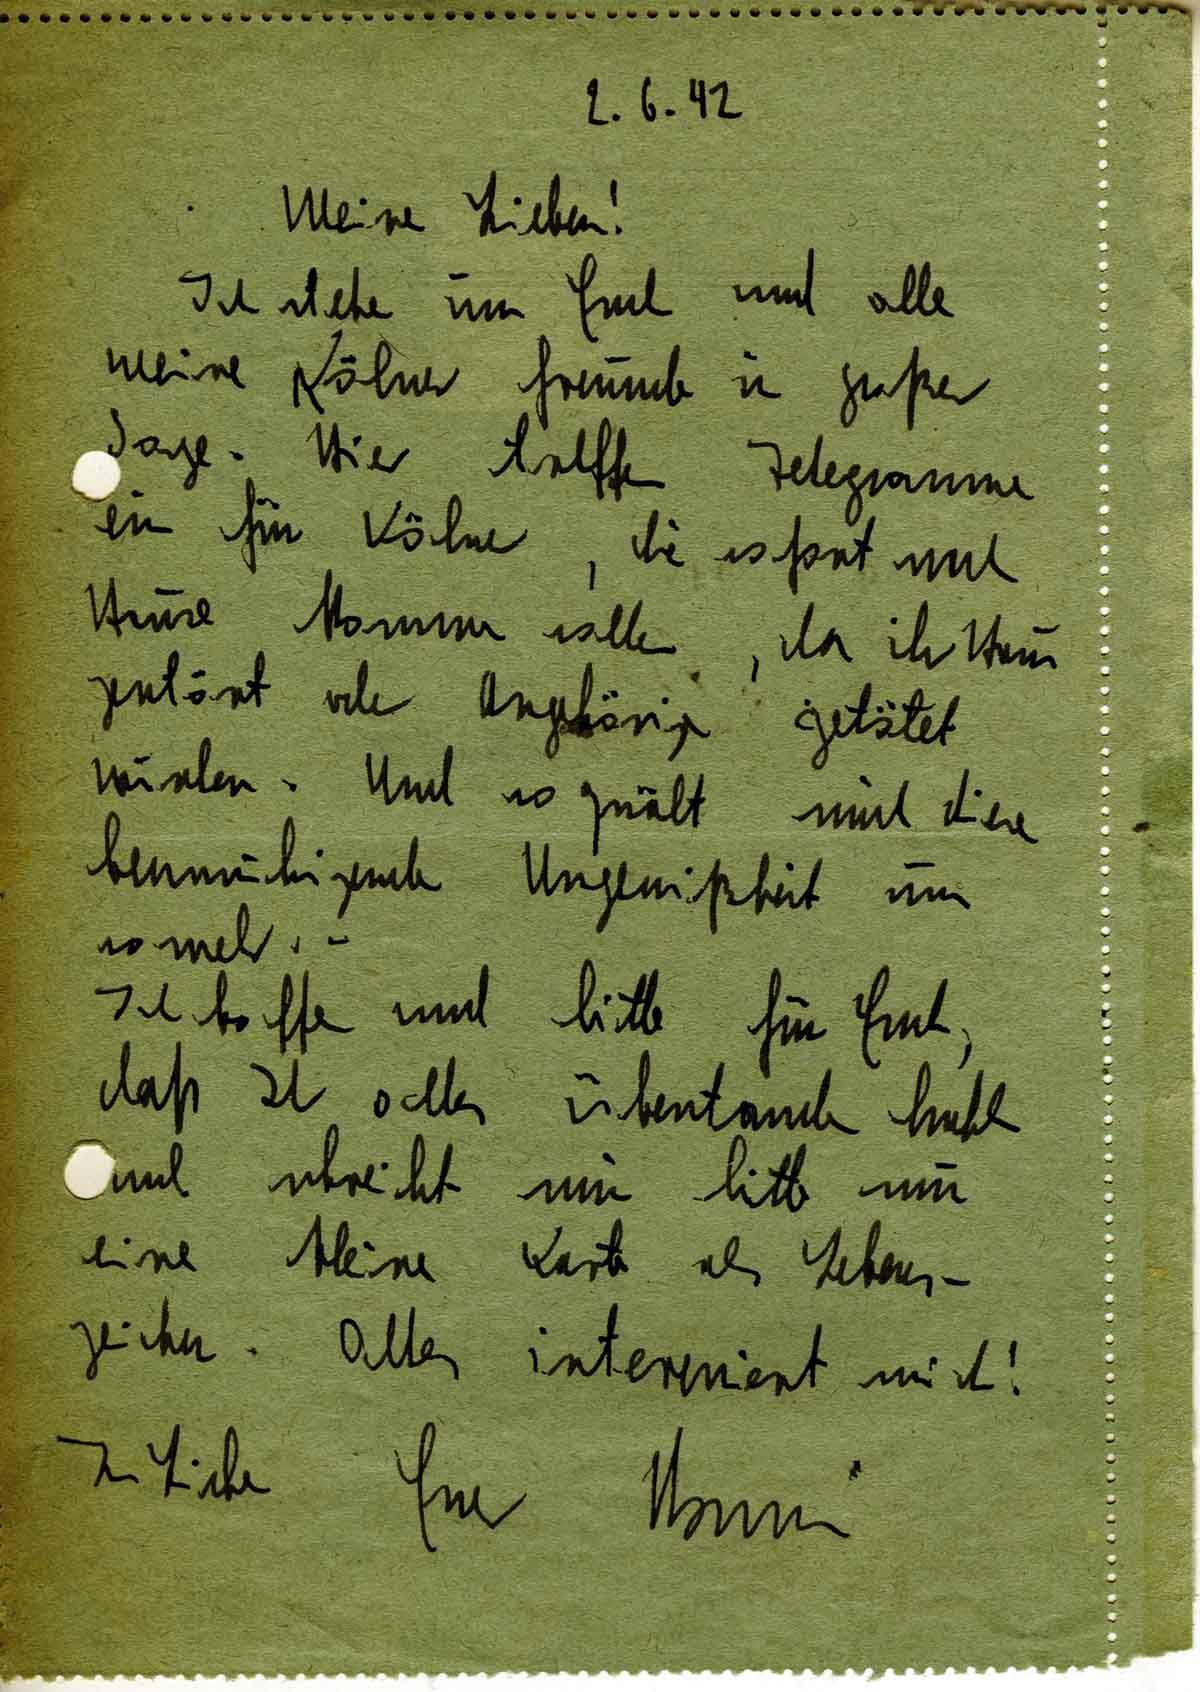 2.6.42
Meine Lieben!
Ich stehe um Euch und alle
meine Kölner Freunde in großer
Sorge. Hier treffen Telegramme
ein für Kölner, die sofort nach
Hause kommen sollen, da ihr Haus
zerstört oder Angehörige getötet
wurden. Und so quält mich diese
beunruhigende Ungewißheit um
so mehr. -
Ich hoffe und bitte für Euch,
daß Ihr alles überstanden habt
und schreibt mir bitte nur
eine kleine Karte als Lebens-
zeichen. Alles interessiert mich!
In Liebe Euer Hanni